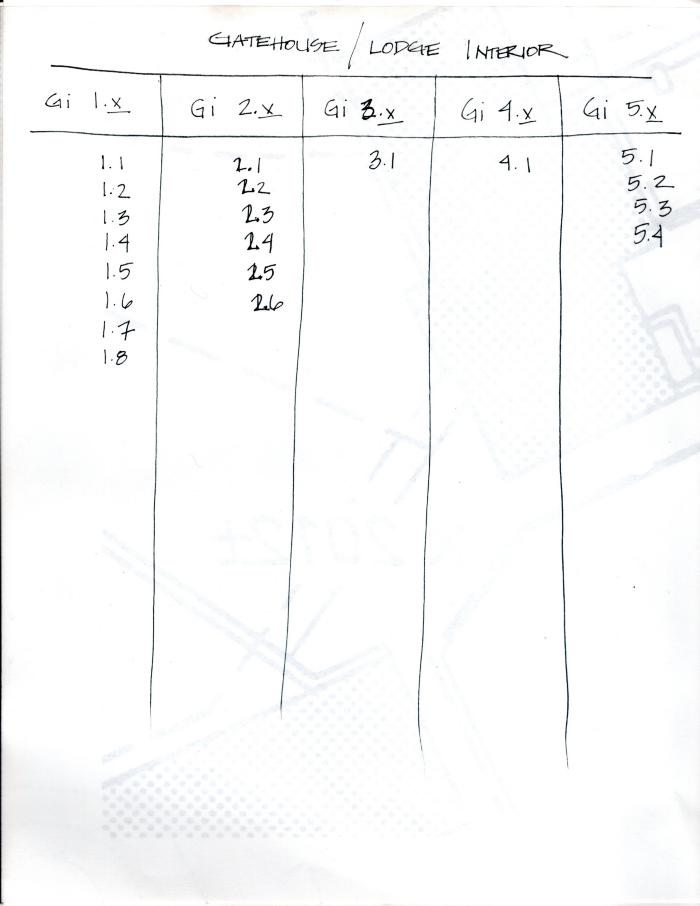 GATEHOUSE / LODGE INTERIOR
Gi 1.x Gi 2.x Gi 3.x Gi 4.x Gi 5.x
1.1 2.1 3.1 4.1 5.1
1.2 2.2 5.2
1.3 2.3 5.3
1.4 2.4 5.4
1.5 2.5
1.6 2.6
1.7
1.8
2012+